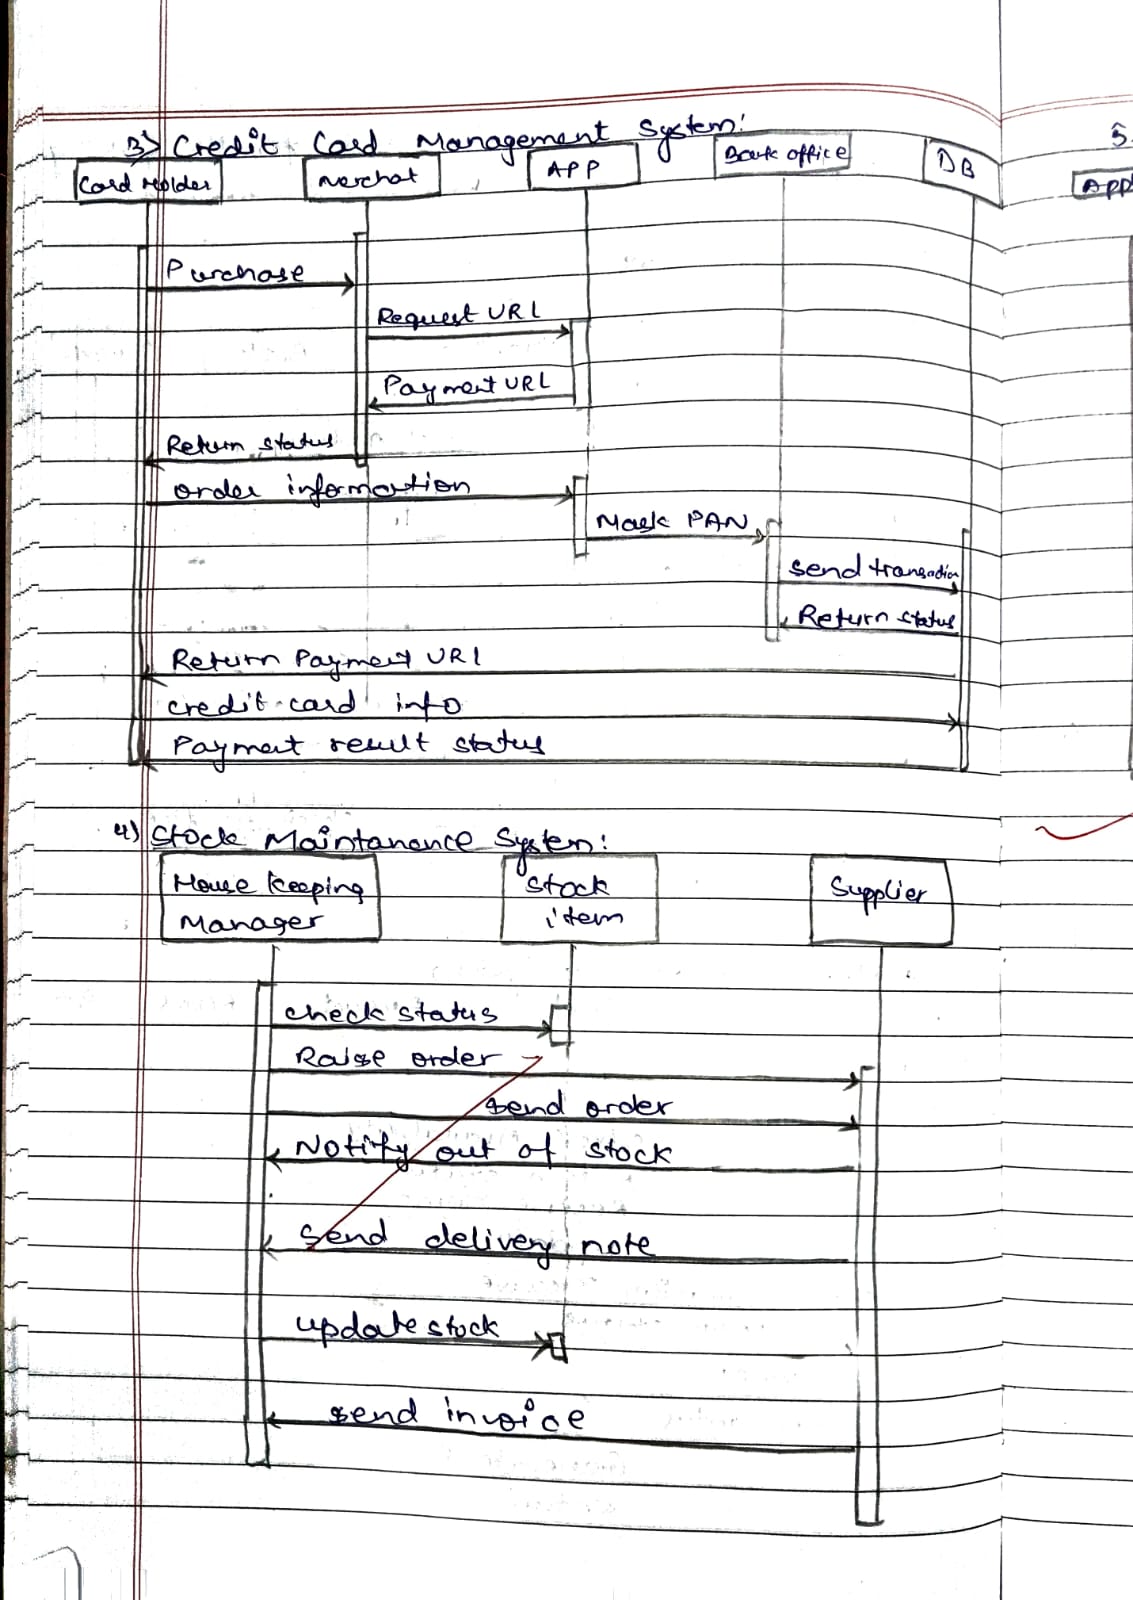 3) Credit Card Management System:
Card Holder
Merchat
APP
Back office
DB
5.
APP
Purchase
Request URL
Payment URL
Return status
order information
Mask PAN
Send transaction
Return status
Return Payment URL
credit card info
Payment result status
4) Stock Maintanance System:
House keeping
Manager
Stock
item
Supplier
check status
Raise order
send order
Notify out of stock
Send delivery note
update stock
send invoice